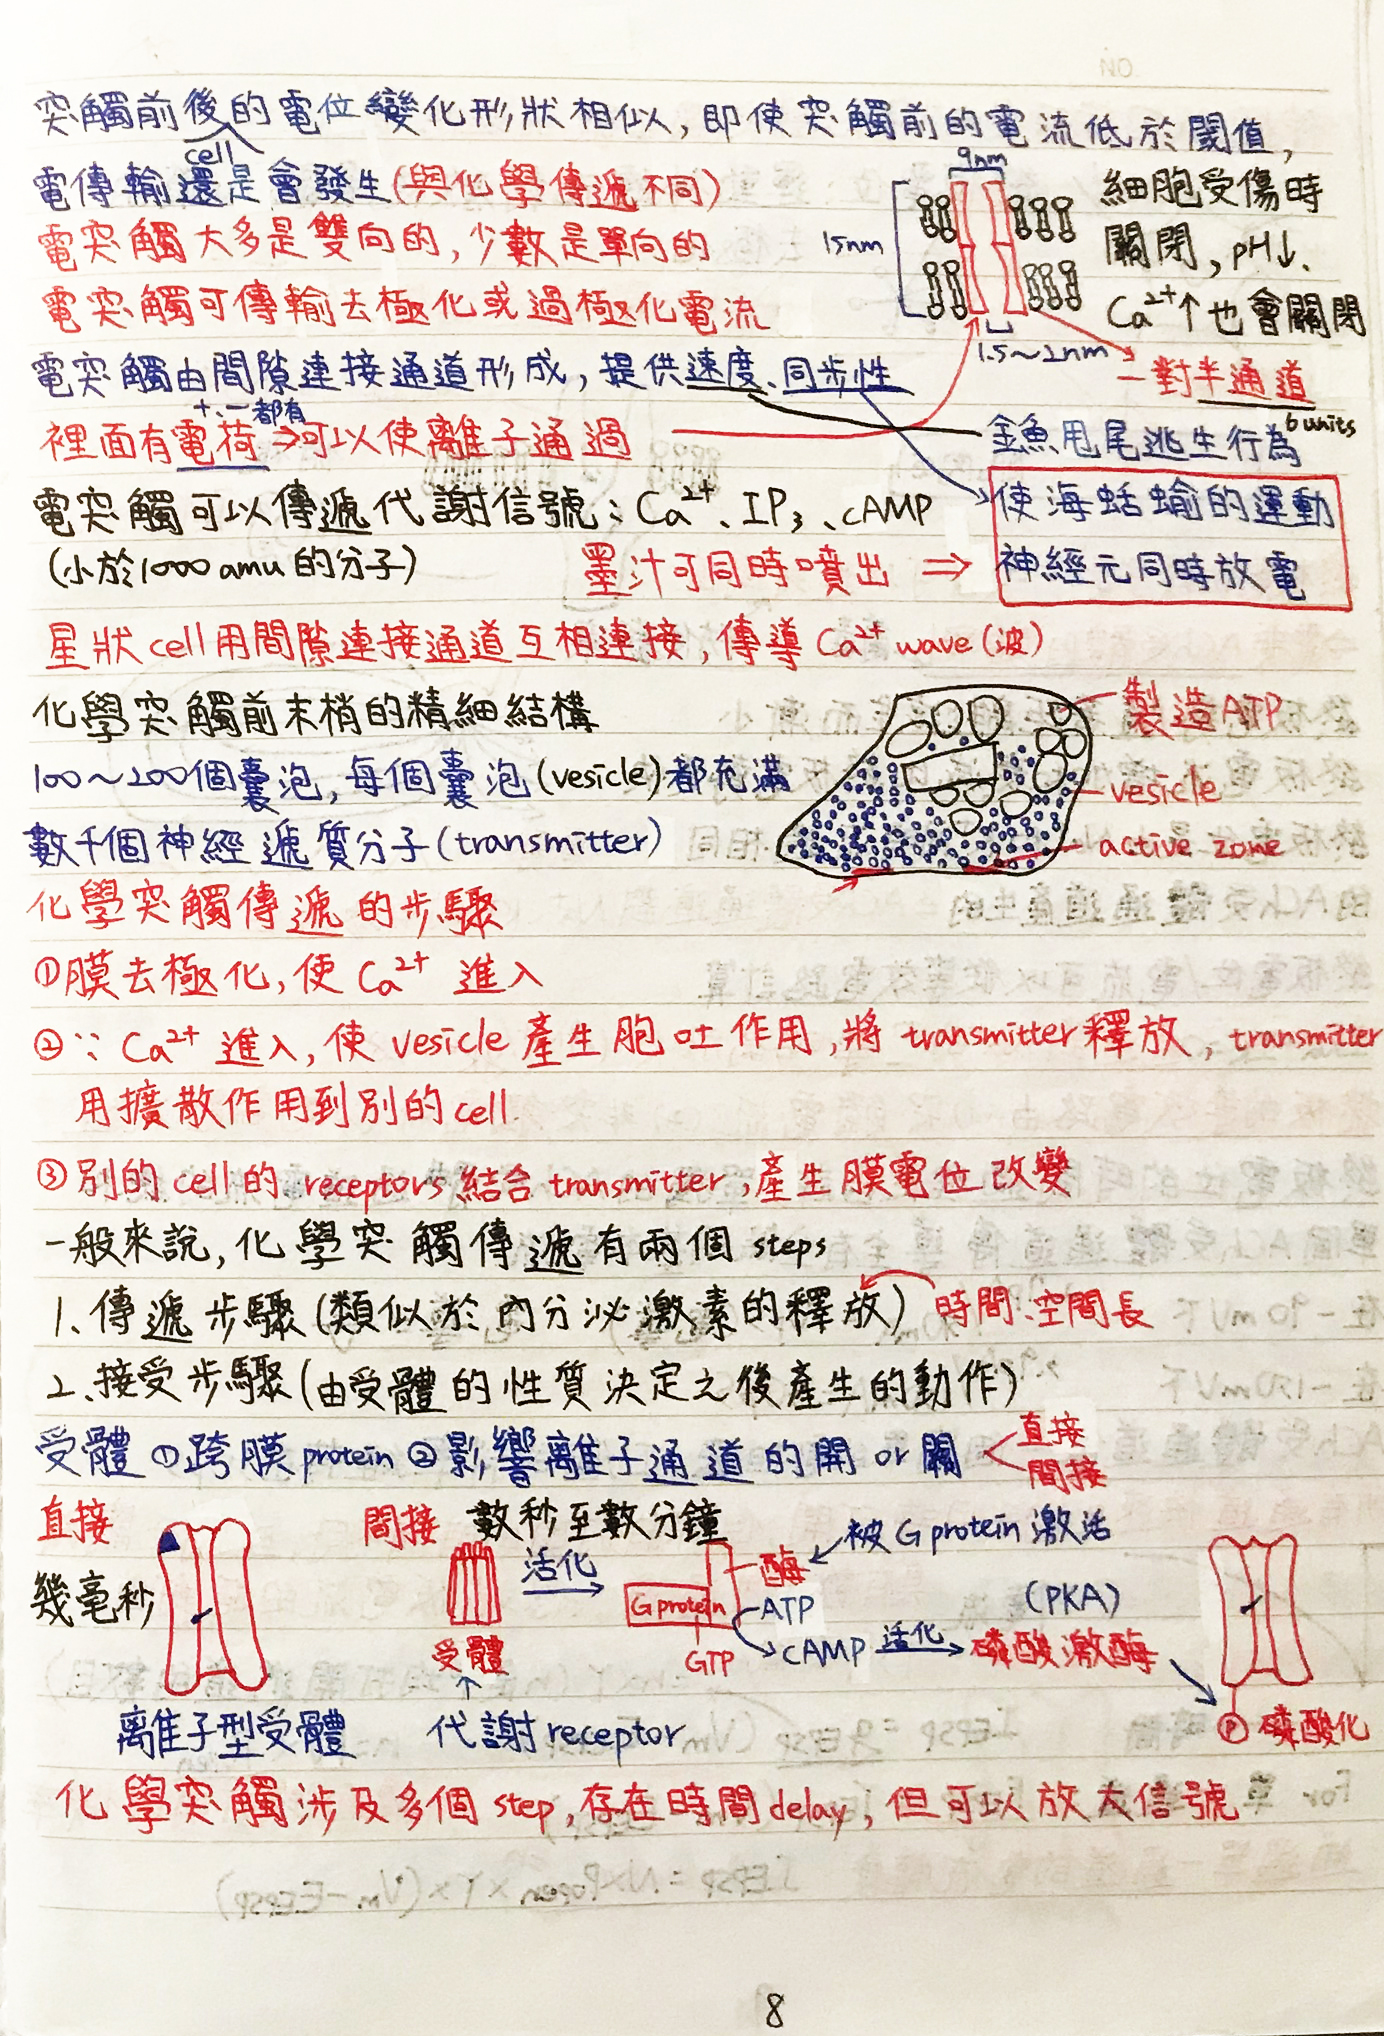 突觸前後的電位變化形狀相似，即使突觸前的電流低於閾值，
cell
電傳輸還是會發生(與化學傳遞不同)
電突觸大多是雙向的，少數是單向的
電突觸可傳輸去極化或過極化電流
9nm
15nm
1.5～2nm
細胞受傷時
關閉，pH↓、
Ca²⁺↑也會關閉
一對半通道
6 units
電突觸由間隙連接通道形成，提供速度、同步性
＋、－都有
裡面有電荷⇒可以使離子通過
金魚甩尾逃生行為
電突觸可以傳遞代謝信號：Ca²⁺、IP₃、cAMP
(小於1000 amu的分子)
墨汁可同時噴出 ⇒
使海蛞蝓的運動
神經元同時放電
星狀cell用間隙連接通道互相連接，傳導Ca²⁺ wave(波)
化學突觸前末梢的精細結構
100～200個囊泡，每個囊泡(vesicle)都充滿
數千個神經遞質分子(transmitter)
製造ATP
vesicle
active zone
化學突觸傳遞的步驟
①膜去極化，使Ca²⁺進入
②∵Ca²⁺進入，使vesicle產生胞吐作用，將transmitter釋放，transmitter
用擴散作用到別的cell
③別的cell的receptors結合transmitter，產生膜電位改變
一般來說，化學突觸傳遞有兩個steps
1、傳遞步驟(類似於內分泌激素的釋放) 時間、空間長
2、接受步驟(由受體的性質決定之後產生的動作)
受體①跨膜protein②影響離子通道的開or關
直接
間接
直接
幾毫秒
離子型受體
間接 數秒至數分鐘
活化
受體
代謝receptor
G protein
GTP
酶
被G protein激活
ATP
cAMP
活化
(PKA)
磷酸激酶
Ⓟ磷酸化
化學突觸涉及多個step，存在時間delay，但可以放大信號
8